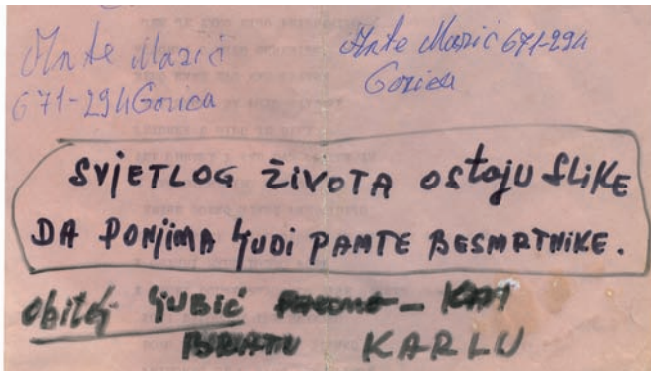 Ante Marić
671-294 Gorica
Ante Marić 671-294
Gorica
SVJETLOG ŽIVOTA OSTAJU SLIKE
DA PONJIMA LJUDI PAMTE BESMRTNIKE.
Obitelj LJUBIĆ
BRATU KARLU